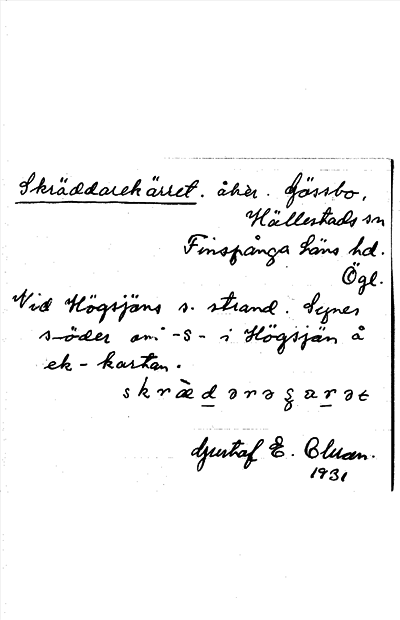 Skräddarekärret. åker. Gössbo,
Hällestads sn
Finspånga läns hd.
Ögl.
Vid Högsjöns s. strand. Synes
s-öder om -s- i Högsjön å
ek-kartan.
Gustaf E.
1931